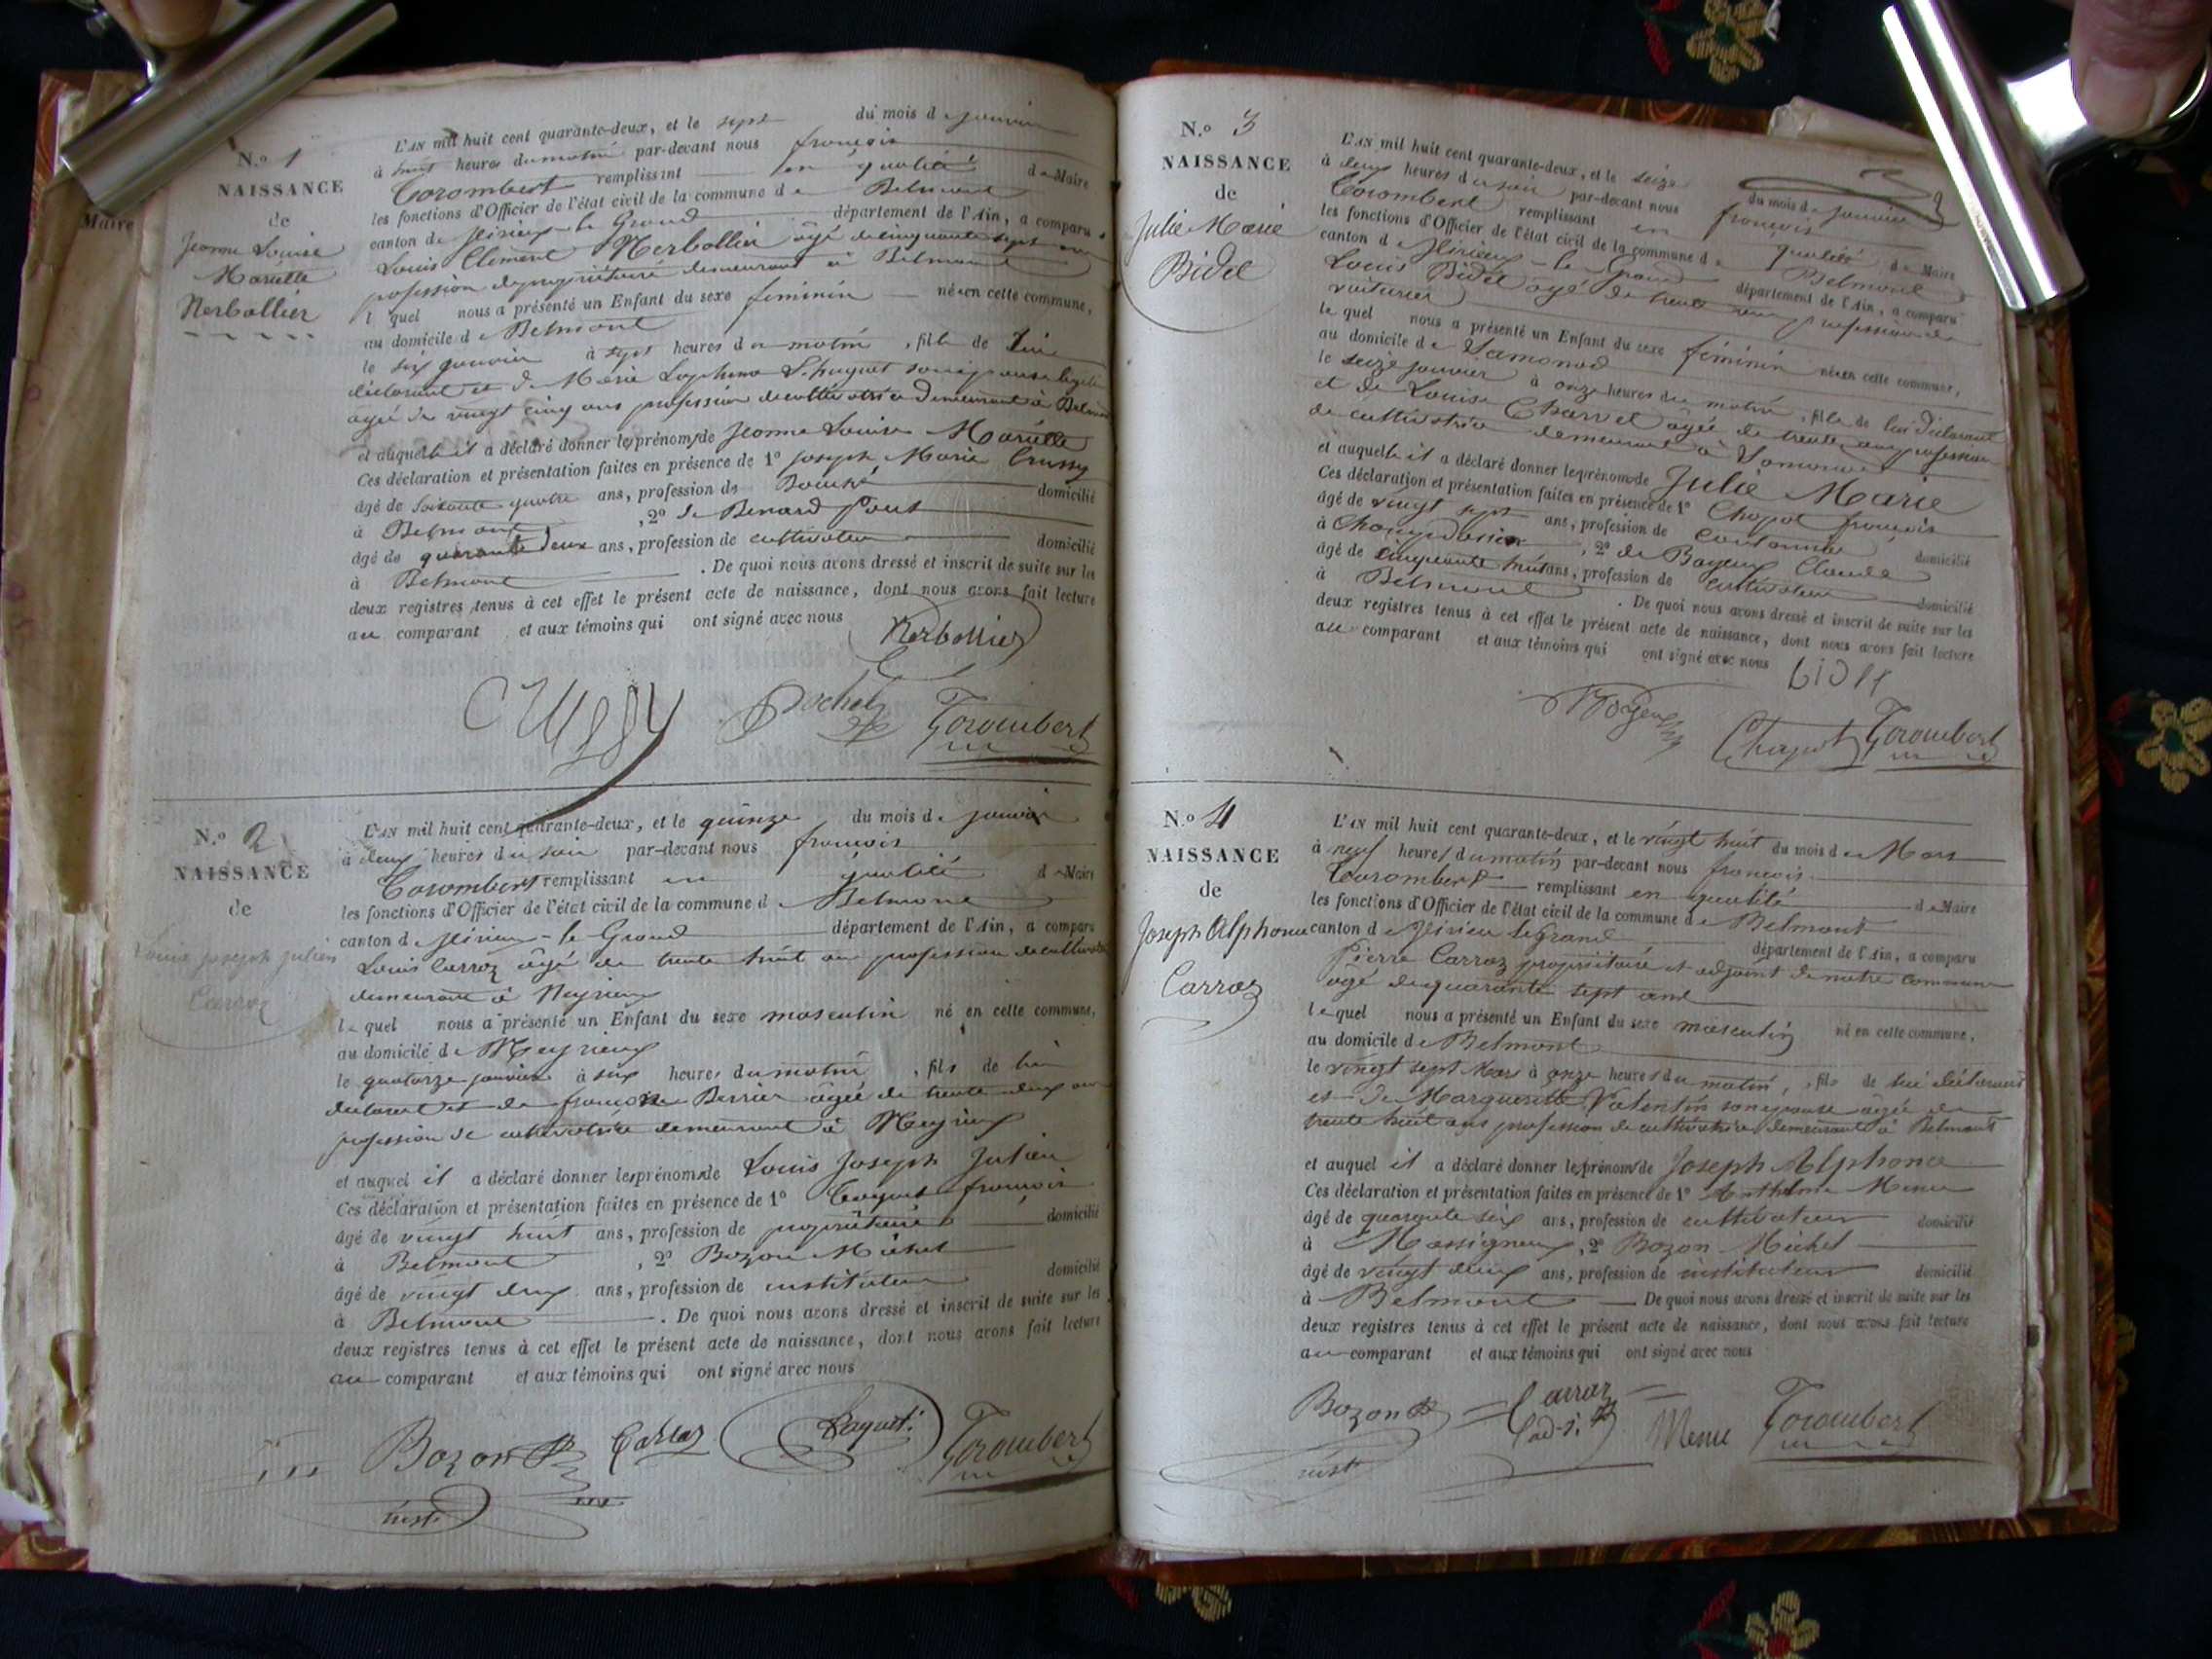 Maire
N.º 1
NAISSANCE
de
Jeanne Louise
Mariette
Nerbollier
L'AN mil huit cent quarante-deux, et le sept du mois de janvier
à huit heures du matin par-devant nous françois
Corombert remplissant en qualité de Maire
les fonctions d'Officier de l'état civil de la commune de Belmont
canton de Virieux-le Grand département de l'Ain, a comparu
Louis Clément Nerbollier âgé de cinquante sept ans
profession de propriétaire demeurant à Belmont
lequel nous a présenté un Enfant du sexe féminin né en cette commune,
au domicile de Belmont
le six janvier à sept heures du matin, fille de lui
déclarant et de Marie Son épouse légitime
âgée de vingt cinq ans profession de cultivatrice demeurant à Belmont
et auquelle il a déclaré donner les prénoms de Jeanne Louise Mariette
Ces déclaration et présentation faites en présence de 1º Joseph Marie Crussy
âgé de soixante quatre ans, profession de domicilié
à Belmont, 2º de
âgé de quarante deux ans, profession de cultivateur domicilié
à Belmont. De quoi nous avons dressé et inscrit de suite sur les
deux registres tenus à cet effet le présent acte de naissance, dont nous avons fait lecture
au comparant et aux témoins qui ont signé avec nous
Nerbollier
Corombert
N.º 2
NAISSANCE
de
Louis joseph julien
Carroz
L'AN mil huit cent quarante-deux, et le quinze du mois de janvier
à deux heures du soir par-devant nous françois
Corombert remplissant en qualité de Maire
les fonctions d'Officier de l'état civil de la commune de Belmont
canton de Virieux-le Grand département de l'Ain, a comparu
Louis Carroz âgé de trente huit ans profession de cultivateur
demeurant à Meyrieux
lequel nous a présenté un Enfant du sexe masculin né en cette commune,
au domicile de Meyrieux
le quatorze janvier à six heures du matin, fils de lui
déclarant et de françoise Perrier âgée de trente deux ans
profession de cultivatrice demeurant à Meyrieux
et auquel il a déclaré donner les prénoms de Louis Joseph Julien
Ces déclaration et présentation faites en présence de 1º françois
âgé de vingt huit ans, profession de propriétaire domicilié
à Belmont, 2º Bozon Michel
âgé de vingt deux ans, profession de instituteur domicilié
à Belmont. De quoi nous avons dressé et inscrit de suite sur les
deux registres tenus à cet effet le présent acte de naissance, dont nous avons fait lecture
au comparant et aux témoins qui ont signé avec nous
Bozon Carroz Corombert
N.º 3
NAISSANCE
de
Julie Marie
Bidel
L'AN mil huit cent quarante-deux, et le seize du mois de janvier
à deux heures du soir par-devant nous françois
Corombert remplissant en qualité de Maire
les fonctions d'Officier de l'état civil de la commune de Belmont
canton de Virieux-le Grand département de l'Ain, a comparu
Louis Bidel âgé de trente ans profession de
voiturier
lequel nous a présenté un Enfant du sexe féminin né en cette commune,
au domicile de Samonod
le seize janvier à onze heures du matin, fille de lui déclarant
et de Louise Charvet âgée de trente ans profession
de cultivatrice demeurant à Samonod
et auquelle il a déclaré donner les prénoms de Julie Marie
Ces déclaration et présentation faites en présence de 1º Chapot françois
âgé de vingt sept ans, profession de domicilié
à, 2º de Bogeux Claude
âgé de cinquante huit ans, profession de cultivateur domicilié
à Belmont. De quoi nous avons dressé et inscrit de suite sur les
deux registres tenus à cet effet le présent acte de naissance, dont nous avons fait lecture
au comparant et aux témoins qui ont signé avec nous
Chapot Corombert
N.º 4
NAISSANCE
de
Joseph Alphonce
Carroz
L'AN mil huit cent quarante-deux, et le vingt huit du mois de Mars
à neuf heures du matin par-devant nous françois
Corombert remplissant en qualité de Maire
les fonctions d'Officier de l'état civil de la commune de Belmont
canton de Virieu le grand département de l'Ain, a comparu
Pierre Carroz propriétaire et adjoint de notre commune
âgé de quarante sept ans
lequel nous a présenté un Enfant du sexe masculin né en cette commune,
au domicile de Belmont
le vingt sept Mars à onze heures du matin, fils de lui déclarant
et de Marguerite Valentin son épouse âgée de
trente huit ans profession de cultivatrice demeurante à Belmont
et auquel il a déclaré donner les prénoms de Joseph Alphonce
Ces déclaration et présentation faites en présence de 1º Anthelme Menu
âgé de quarante six ans, profession de cultivateur domicilié
à Massignieu, 2º Bozon Michel
âgé de vingt deux ans, profession de instituteur domicilié
à Belmont De quoi nous avons dressé et inscrit de suite sur les
deux registres tenus à cet effet le présent acte de naissance, dont nous avons fait lecture
au comparant et aux témoins qui ont signé avec nous
Bozon Carroz Menu Corombert